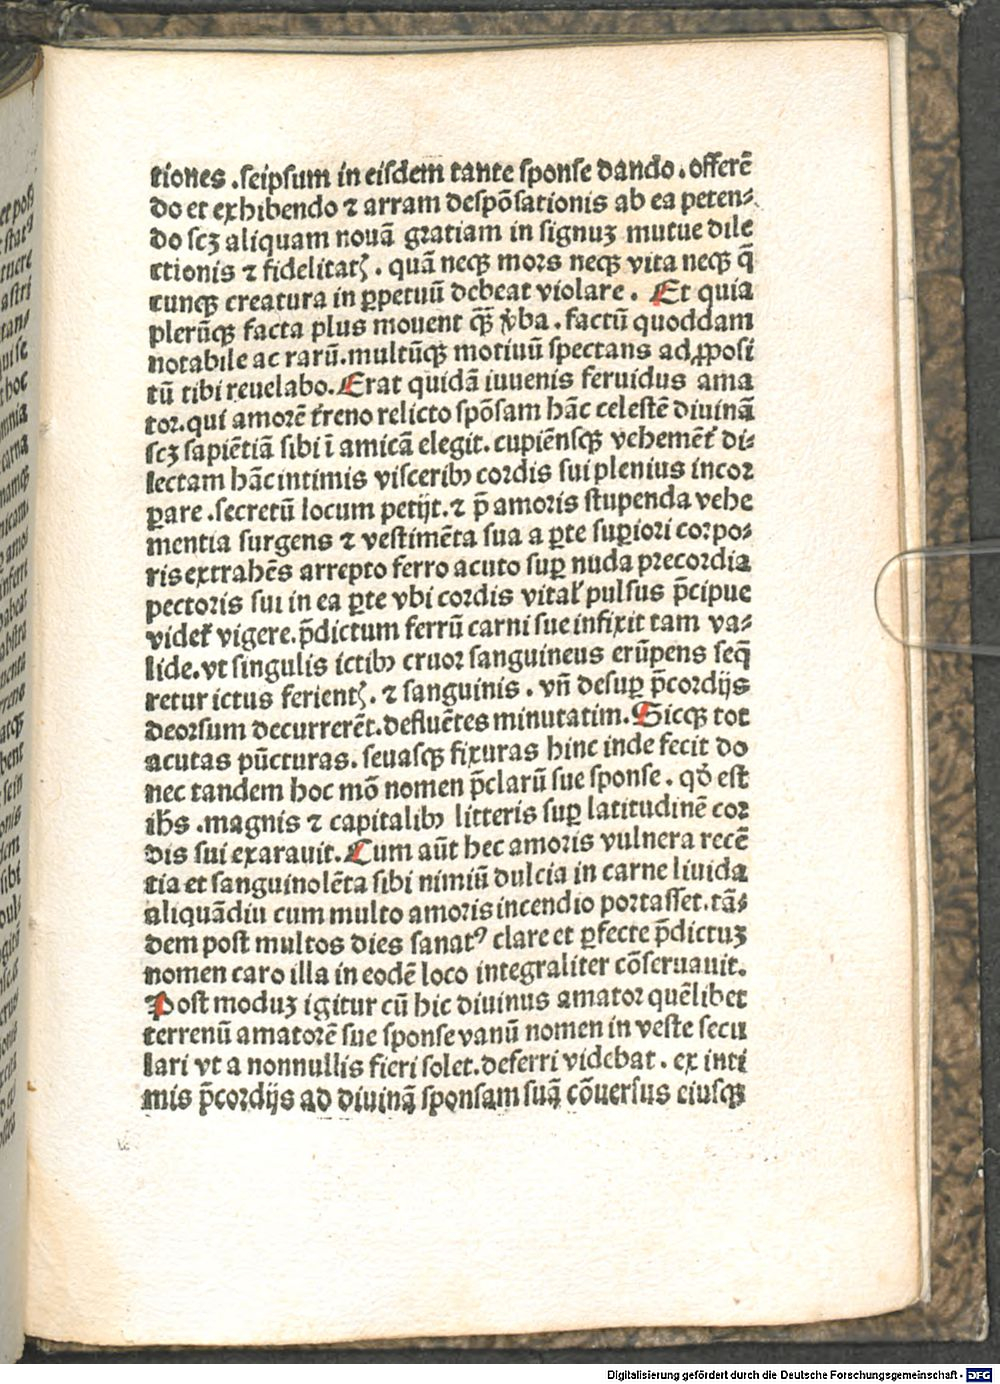 tiones .seipsum in eisdem tante sponse dando . offerē
do et exhibendo ⁊ arram despōsationis ab ea peten⸗
do scꝫ aliquam nouā gratiam in signuꝫ mutue dile
ctionis ⁊ fidelitatꝭ . quā neqꝫ mors neqꝫ vita neqꝫ q̄
cunqꝫ creatura in ꝑpetuū debeat violare . Et quia
plerūqꝫ facta plus mouent qꝫ̄ v̓ba . factū quoddam
notabile ac rarū.multūqꝫ motiuū spectans ad ꝓposi
tū tibi reuelabo. Erat quidā iuuenis feruidus ama
tor.qui amorē t̓reno relicto spōsam hāc celestē diuinā
scꝫ sapiētiā sibi ī amicā elegit. cupiēnsqꝫ vehemēt̓ di⸗
lectam hāc intimis visceribꝰ cordis sui plenius incor
ꝑare .secretū locum petijt.⁊ p̄ amoris stupenda vehe
mentia surgens ⁊ vestimēta sua a ꝑte suꝑiori corpo⸗
ris extrahēs arrepto ferro acuto suꝑ nuda precordia
pectoris sui in ea ꝑte vbi cordis vital̓ pulsus p̄cipue
videt̓ vigere.p̄dictum ferrū carni sue infixit tam va⸗
lide.vt singulis ictibꝰ cruor sanguineus erūpens seq̄
retur ictus ferientꝭ. ⁊ sanguinis . vn̄ desuꝑ p̄cordijs
deorsum decurrerēt.defluētes minutatim. Sicqꝫ tot
acutas pūcturas. seuasqꝫ fixuras hinc inde fecit do
nec tandem hoc mō nomen p̄clarū sue sponse . qd̓ est
ihs̄ .magnis ⁊ capitalibꝰ litteris suꝑ latitudinē cor
dis sui exarauit. Cum aūt hec amoris vulnera recē
tia et sanguinolēta sibi nimiū dulcia in carne liuida
aliquādiu cum multo amoris incendio portasset.tā⸗
dem post multos dies sanatꝰ clare et ꝑfecte p̄dictuꝫ
nomen caro illa in eodē loco integraliter cōseruauit.
Post moduꝫ igitur cū hic diuinus amator quēlibet
terrenū amatorē sue sponse vanū nomen in veste secu
lari vt a nonnullis fieri solet.deferri videbat . ex inti
mis p̄cordijs ad diuinā sponsam suā cōuersus eiusqꝫ
Digitalisierung gefördert durch die Deutsche Forschungsgemeinschaft - DFG